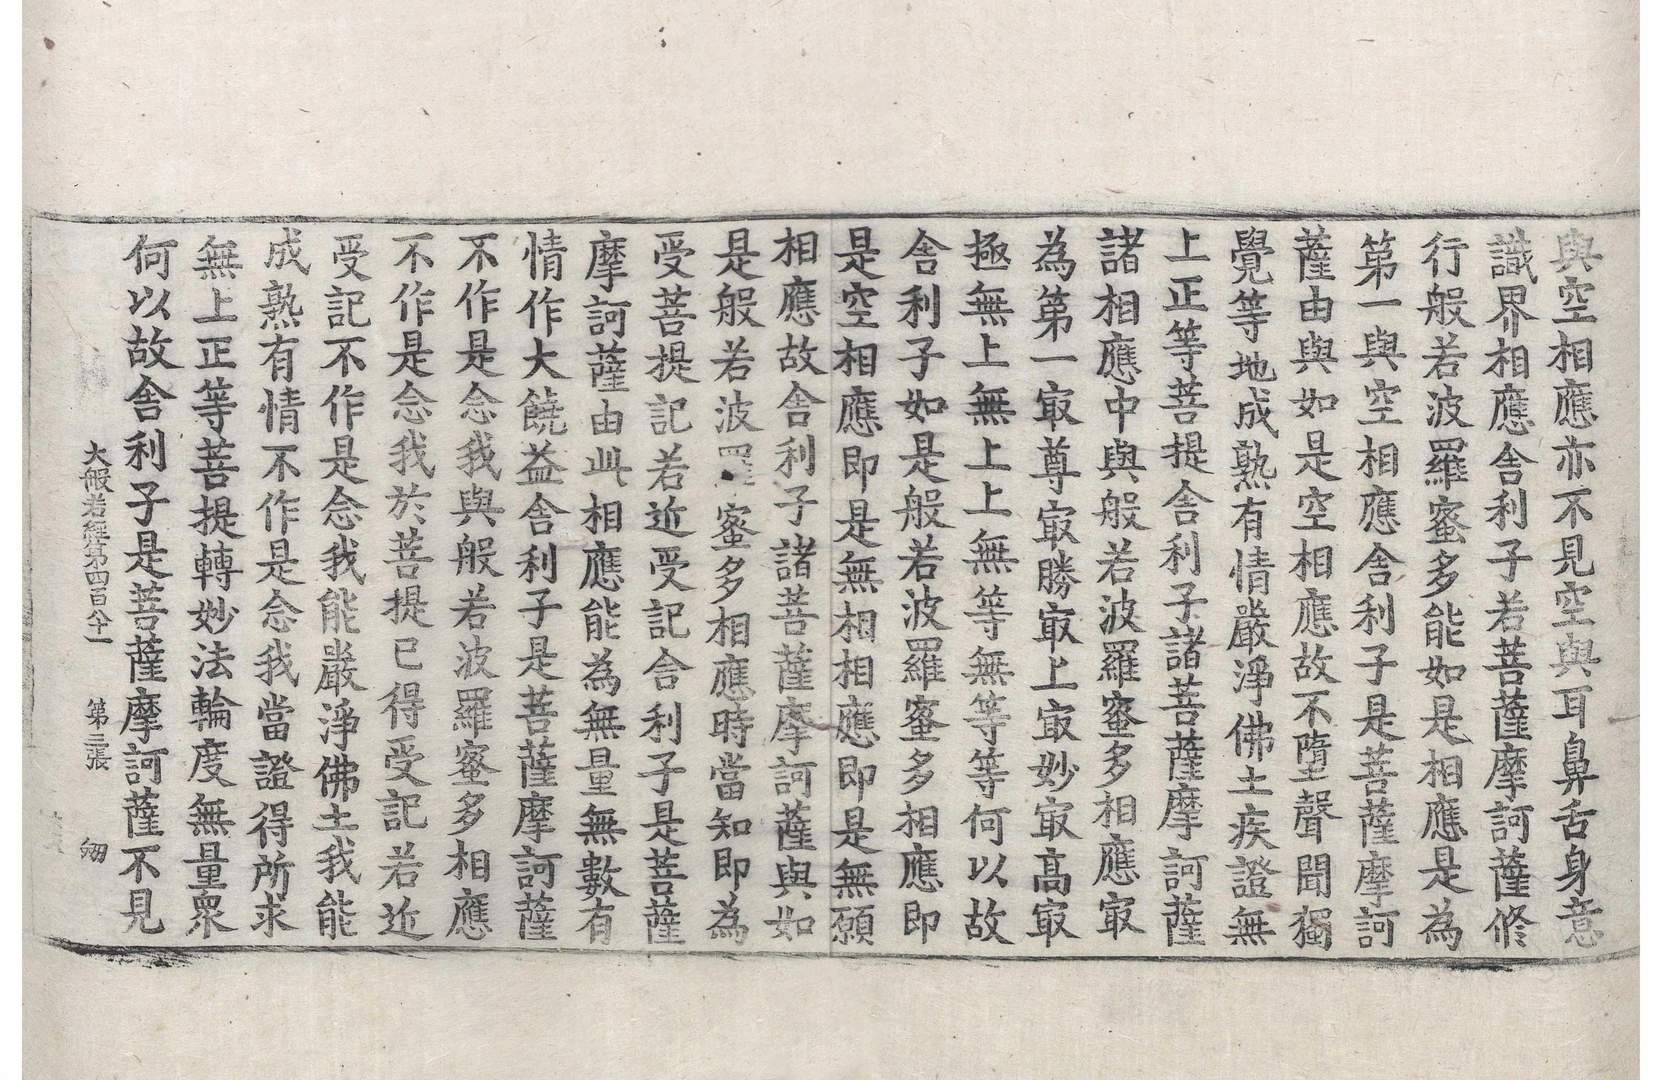 與空相應亦不見空與耳鼻舌身意
識界相應舍利子若菩薩摩訶薩修
行般若波羅蜜多能如是相應是為
第一與空相應舍利子是菩薩摩訶
薩由與如是空相應故不墮聲聞獨
覺等地成熟有情嚴淨佛土疾證無
上正等菩提舍利子諸菩薩摩訶薩
諸相應中與般若波羅蜜多相應㝡
為第一㝡尊㝡勝㝡上㝡妙㝡高㝡
極無上無上上無等無等等何以故
舍利子如是般若波羅蜜多相應即
是空相應即是無相相應即是無願
相應故舍利子諸菩薩摩訶薩與如
是般若波羅蜜多相應時當知即為
受菩提記若近受記舍利子是菩薩
摩訶薩由此相應能為無量無數有
情作大饒益舍利子是菩薩摩訶薩
不作是念我與般若波羅蜜多相應
不作是念我於菩提已得受記若近
受記不作是念我能嚴淨佛土我能
成熟有情不作是念我當證得所求
無上正等菩提轉妙法輪度無量眾
何以故舍利子是菩薩摩訶薩不見
大般若經第四百八十一 第三張 翔